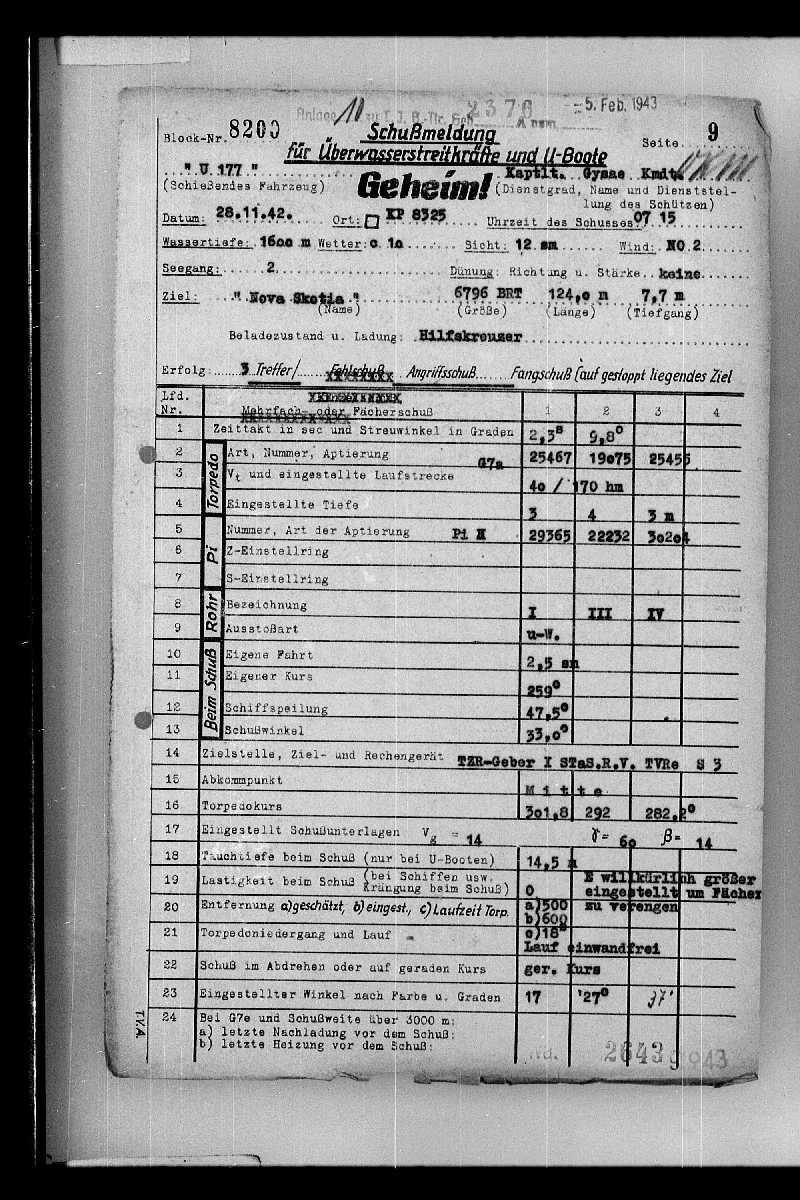 Anlage 10 zu T.I.B.-Nr. Geh 2376 - 5. Feb. 1943
Block-Nr. 8200 Schußmeldung Seite 9
für Überwasserstreitkräfte und U-Boote
" U 177 " Geheim! Kaptlt. Gysae Kmdt.
(Schießendes Fahrzeug) (Dienstgrad, Name und Dienststel-
lung des Schützen)
Datum: 28.11.42. Ort: KP 8325 Uhrzeit des Schusses 07 15
Wassertiefe: 1600 m Wetter: c 10 Sicht: 12 sm Wind: NO 2
Seegang: 2 Dünung: Richtung u. Stärke keine
Ziel: " Nova Skotia " 6796 BRT 124,0 m 7,7 m
(Name) (Größe) (Länge) (Tiefgang)
Beladezustand u. Ladung: Hilfskreuzer
Erfolg: 3 Treffer/ Fehlschuß Angriffsschuß Fangschuß (auf gestoppt liegendes Ziel
Lfd. Nr. Mehrfach- oder Fächerschuß 1 2 3 4
1 Zeittakt in sec und Streuwinkel in Graden 2,3s 9,8°
Torpedo
2 Art, Nummer, Aptierung G7a 25467 19075 25455
3 Vt und eingestellte Laufstrecke 40 / 170 hm
4 Eingestellte Tiefe 3 4 3 m
Pi
5 Nummer, Art der Aptierung Pi II 29365 22232 30204
6 Z-Einstellring
7 S-Einstellring
Rohr
8 Bezeichnung I III IV
9 Ausstoßart u-W.
Beim Schuß
10 Eigene Fahrt 2,5 sm
11 Eigener Kurs 259°
12 Schiffspeilung 47,5°
13 Schußwinkel 33,0°
14 Zielstelle, Ziel- und Rechengerät TZR-Geber I STaS.R.V. TVRe S 3
15 Abkommpunkt M i t t e
16 Torpedokurs 301,8 292 282,2°
17 Eingestellt Schußunterlagen Vg = 14 γ= 60 β= 14
18 Tauchtiefe beim Schuß (nur bei U-Booten) 14,5 m
19 Lastigkeit beim Schuß (bei Schiffen usw. Krängung beim Schuß) 0 E willkürlich größer
eingestellt um Fächer
20 Entfernung a) geschätzt, b) eingest., c) Laufzeit Torp. a)500 zu verengen
b)600
21 Torpedoniedergang und Lauf c)18s
Lauf einwandfrei
22 Schuß im Abdrehen oder auf geraden Kurs ger. Kurs
23 Eingestellter Winkel nach Farbe u. Graden 17 27° 37°
24 Bei G7e und Schußweite über 3000 m:
a) letzte Nachladung vor dem Schuß:
b) letzte Heizung vor dem Schuß:
T.V.A.
Nd. 2643 943